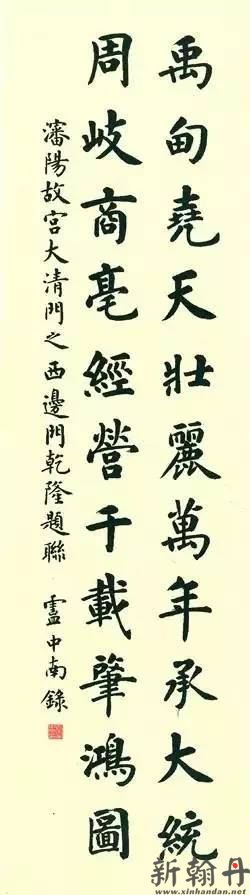 禹甸堯天壯麗萬年承大統
周岐商亳經營千載肇鴻圖
瀋陽故宮大清門之西邊門乾隆題聯
盧中南錄
新翰丹
www.xinhandan.net